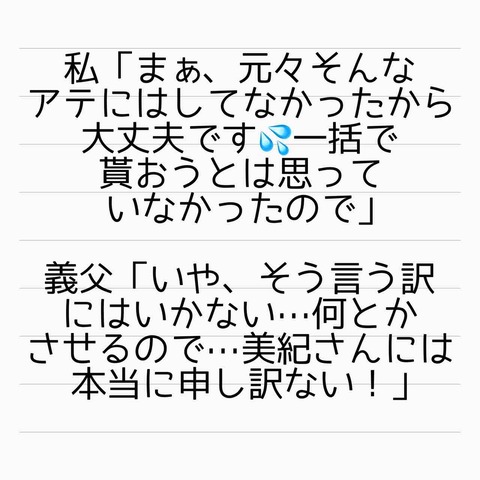 私「まぁ、元々そんな
アテにはしてなかったから
大丈夫です💦一括で
貰おうとは思って
いなかったので」
義父「いや、そう言う訳
にはいかない…何とか
させるので…美紀さんには
本当に申し訳ない！」